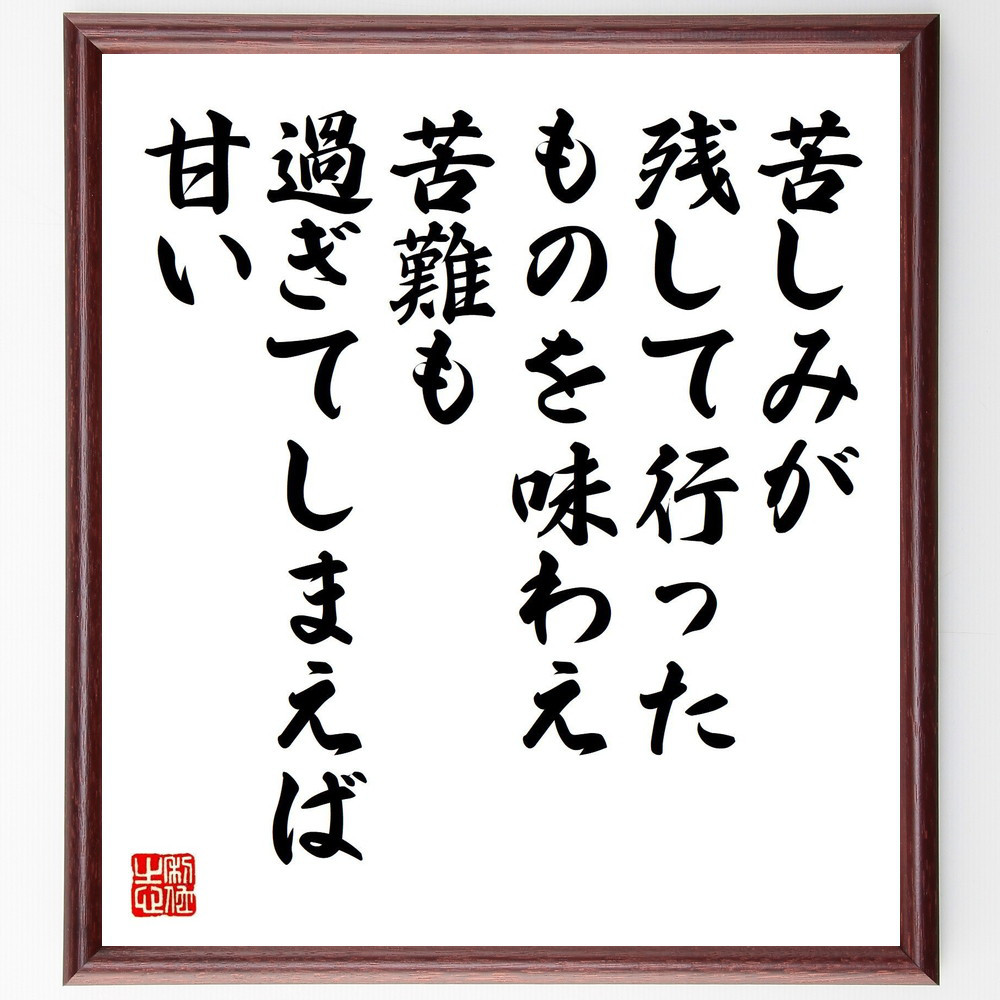 苦しみが
残して行った
ものを味わえ
苦難も
過ぎてしまえば
甘い